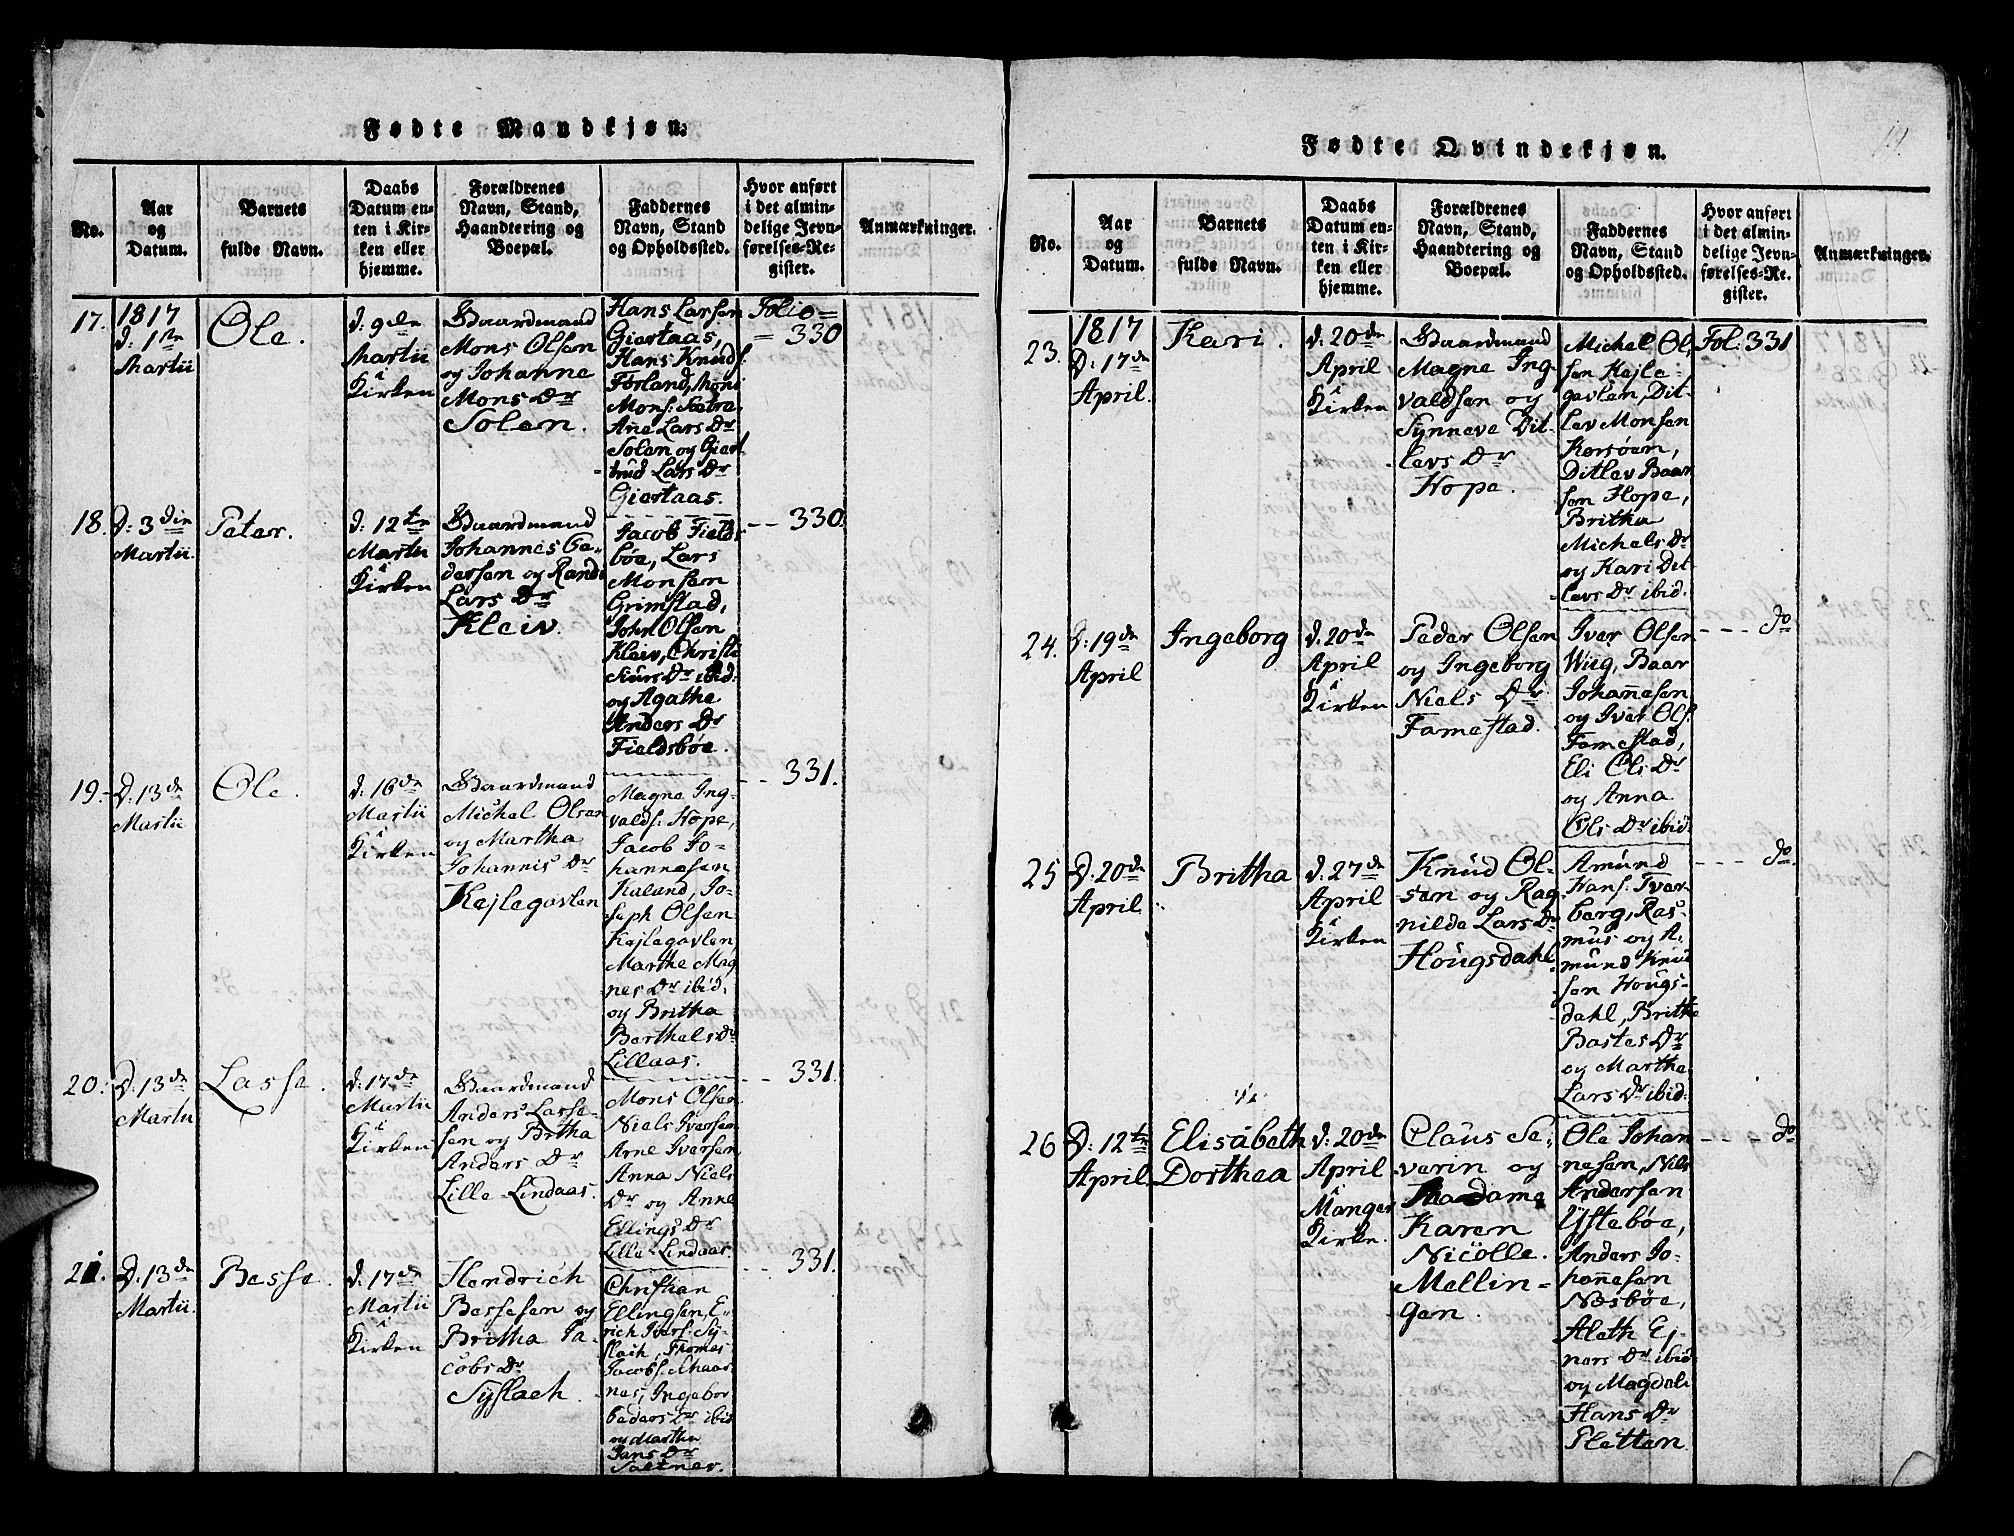 Fødte Mandkjøn.
No.
Aar
og
Datum.
Barnets
fulde Navn.
Daabs
Datum en-
ten i Kir-
ken eller
hjemme.
Forældrenes
Navn, Stand,
Haandtering og
Boepæl.
Faddernes
Navn, Stand
og Opholdssted.
Hvor anført
i det almin-
delige Jevn-
førelses-Re-
gister.
Anmærkninger.
17.
1817
D: 1ste
Martii
Ole.
d: 9de
Martii
i
Kirken
Gaardmand
Mons Olsen
og Johanne
Mons Dr
Solem.
Hans Larsen
Giertaas,
Hans Knuds.
Førland, Mons
Mons: Sætra
Ane Lars Dr
Solem og Giert
trud Lars Dr
Giertaas.
Folio =
= 330
18.
D: 3die
Martii.
Peter.
d: 12te
Martii
i
Kirken
Gaardmand
Johannes Pe-
dersen og Randi
Lars Dr
Kleiv.
Jacob Fields
bøe, Lars
Monsen
Grimstad,
John Olsen
Kleiv, Christi
Siurs Dr ibid:
og Agathe
Anders Dr
Fieldsbøe.
-- 330.
19.
D: 13de
Martii
Ole.
d: 16de
Martii
i
Kirken
Gaardmand
Michel Olsen
og Martha
Johannis Dr
Kejlegavlen
Magne Ing-
valds: Hope,
Jacob Jo-
hannesen
Kaland, Jo-
seph Olsen
Kejlegavlen
Marthe Mag
nes Dr ibid:
og Britha
Berthels Dr
Lillaas.
-- 331.
20.
D: 13de
Martii
Lasse.
d: 17de
Martii
i
Kirken
Gaardmand
Anders Lasse-
sen og Britha
Anders Dr
Lille Lindaas.
Mons Olsen
Niels Iversen
Arne Iversen
Anna Niels
Dr og Anne
Ellings Dr
Lille Lindaas.
-- 331.
21.
D: 13de
Martii.
Besse.
d: 17de
Martii
i
Kirken
Hendrich
Bessesen og
Britha Ja-
cobs Dr
Syslach.
Christian
Ellingsen, E-
rich Ivers: Sy-
slach, Thomas
Jacobs:
nes, Ingebor
Peders Dr ibid
og Martha
Jans Dr
-- 331.
Fødte Qvindekjøn.
No.
Aar
og
Datum.
Barnets
fulde Navn.
Daabs
Datum en-
ten i Kir-
ken eller
hjemme.
Forældrenes
Navn, Stand,
Haandtering og
Boepæl.
Faddernes
Navn, Stand
og Opholdssted.
Hvor anført
i det almin-
delige Jevn-
førelses-Re-
gister.
Anmærkninger.
23.
1817
D: 17de
April.
Kari.
d: 20de
April
i
Kirken
Gaardmand
Magne Ing-
valdsen og
Synneve Dit-
levs Dr
Hope.
Michel Ol,
sen Kejle-
gavlen, Dit-
lev Monsen
Korsøen,
Ditlev Baar
sen Hope,
Britha
Michels Dr
og Kari Dit-
levs Dr ibid.
Fol: 331
24.
D: 19de
April
Ingeborg
d. 20de
April
i
Kirken
Peder Olsen
og Ingeborg
Niels Dr
Famestad.
Iver Olsen
Wiig, Baar
Johannesen
og Iver Ols.
Famestad,
Eli Ols Dr
og Anna
Ols Dr ibid.
--- do
25
D. 20de
April
Britha
d: 27de
April
i
Kirken
Knud Ol-
sen og Rag
nilde Lars Dr
Hougsdahl.
Amund
Hans: Tver
berg, Ras-
mus og A-
mund Knud
sen Hougs-
dahl, Britha
Bastes Dr
og Martha
Lars Dr ibid:
--- do
26
D: 12te
April
Elisabeth
Dorthea
d: 20de
April
i
Manger
Kirke.
Claus Se-
verin og
Madame
Karen
Nicolle.
Mellin-
gen.
Ole Johan
nesen, Niels
Andersen
Ystebøe,
Anders Jo-
hannesen
Næsbøe,
Aleth Ej-
ners Dr ibid
og Magdeli
Hans Dr
Sletten.
--- do